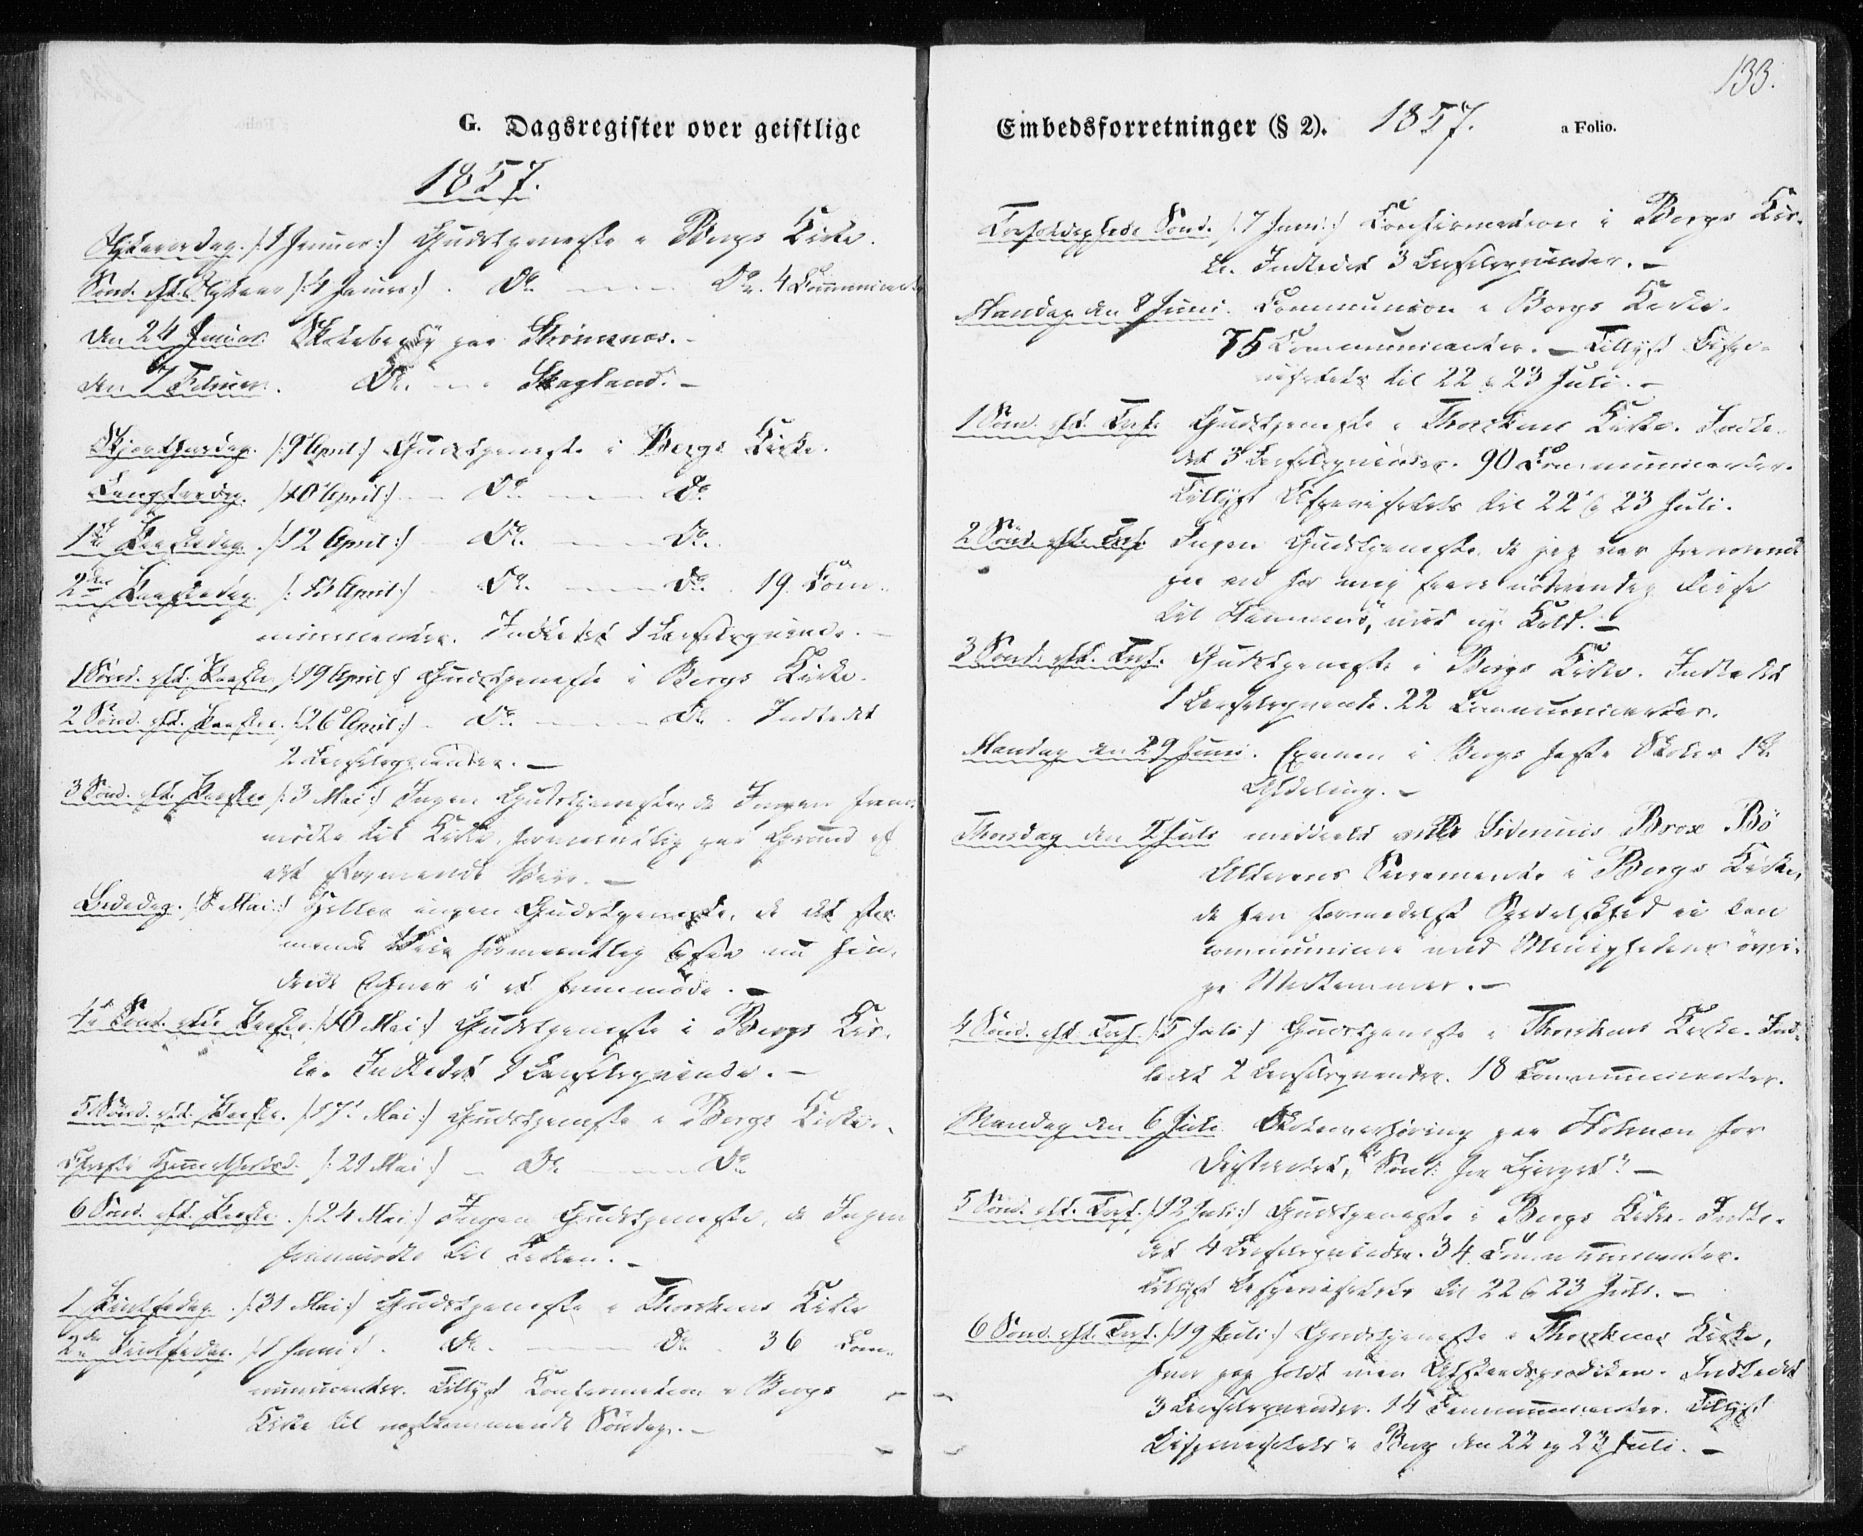 G. Dagsregister over geistlige
1857.
Nytaarsdag. /:1 Januar:/ Gudstjeneste i Bergs Kirke.
Sønd. eft. Nytaar /:4 Januar:/ . Do. — Do. 4 Communicanter
den 24 Januar Skolebesøg paa Strømsnæs. –
den 7 Februar. Do. — Skagland. –
Skjærthorsdag. /:9 April:/ Gudstjeneste i Bergs Kirke.
Langfredag. /:10 April:/ — Do — Do
1ste Paaskedag. /:12 April:/ — Do. — Do.
2den Paaskedag /:13 April:/ Do. — Do. 19 Com-
municanter. Indledet 1 Barselqvinde. –
1 Sønd. eft. Paaske /:19 April:/ Gudstjeneste i Bergs Kirke.
2 Sønd. eft. Paaske. /:26 April:/ — Do. — Do. Indledt
2 Barselqvinder. —
3 Sønd. eft. Paaske /:3 Mai:/ Ingen Gudstjeneste da Ingen frem-
mødte til Kirke, formeentlig paa Grund af
det stormende Veir. —
Bededag. /:8 Mai:/ Heller ingen Gudstjeneste, da det stor-
mende Veir formeentlig ogsaa nu hin-
drede Enhver i at fremmøde. —
4de Sønd. efter Paaske. /:10 Mai:/ Gudstjeneste i Bergs Kir-
ke. Indledet 1 Barselqvinde. –
5 Sønd. eft. Paaske. /:17 Mai:/ Gudstjeneste i Bergs Kirke.
Christi Himmelfartsd. /:21 Mai:/ — Do — Do
6 Sønd. eft. Paaske. /:24 Mai:/ Ingen Gudstjeneste, da Ingen
fremmødte til Kirken. –
1 Pintsedag. /:31 Mai:/ Gudstjeneste i Thorskens Kirke
2den Pintsedag. /:1 Juni:/ . Do. — Do. 36 Com-
municanter. Tillyst Confirmation i Bergs
Kirke til næstkommende Søndag. –
133.
Embedsforretninger (§ 2). 1857. a Folio.
Trefoldigheds Sønd. /:7 Juni:/ Confirmation i Bergs Kir-
ke. Indledet 3 Barselqvinder. –
Mandag den 8 Juni. Communion i Bergs Kirke.
75 Communicanter. – Tillyst
til 22 & 23 Juli. –
1 Sønd. eft. Tref. Gudstjeneste i Thorskens Kirke. Indle-
det 3 Barselqvinder. 90 Communicanter.
Tillyst til 22 & 23 Juli.
2 Sønd. efter Tref. Ingen Gudstjeneste, da jeg var
paa en for mig nødvendig Reise
til mit nye Kald. –
3 Sønd. eft. Tref. Gudstjeneste i Bergs Kirke. Indledet
1 Barselqvinde. 22 Communicanter.
Mandag den 29 Juni. Examen i Bergs faste Skoles 1ste
Afdeling. –
Thorsdag den 2 Juli meddeelt Sidenius Brox Bø
Alterens Sacramente i Bergs Kirke,
da han formedelst Spedalskhed ei kan
communicere med Menighedens øvri-
ge Medlemmer. –
4 Sønd. eft. Tref. /:5 Juli:/ Gudstjeneste i Thorskens Kirke. Ind-
ledt 2 Barselqvinder. 18 Communicanter.
Mandag den 6 Juli. Skoleoverhøring paa Holmen for
Districtet, –
5 Sønd. eft. Tref. /:12 Juli:/ Gudstjeneste i Bergs Kirke. Indle-
det 4 Barselqvinder. 34 Communicanter.
Tillyst til 22 & 23 Juli. –
6 Sønd. eft. Tref. /:19 Juli:/ Gudstjeneste i Thorskens Kirke,
hvor jeg holdt min Afskedsprædiken. Indledet
3 Barselqvinder. 14 Communicanter. Tillyst
i Berg den 22 og 23 Juli. –